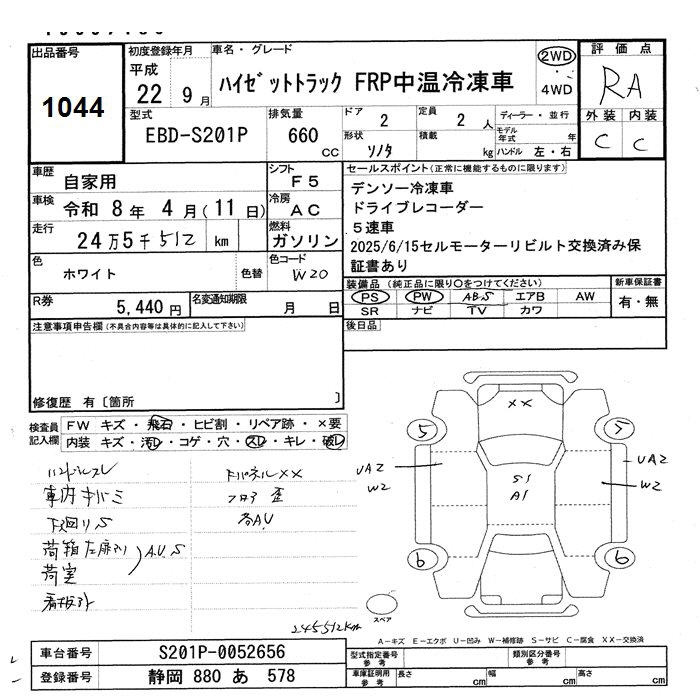 出品番号
1044
初度登録年月
平成
22 9 月
車名・グレード
ハイゼットトラック FRP中温冷凍車
2WD
4WD
評価点
RA
外装 内装
C C
型式
EBD-S201P
排気量
660 cc
ドア
2
定員
2 人
形状
積載
kg
ディーラー・並行
モデル年式 年
ハンドル 左・右
車歴
自家用
シフト
F5
車検
令和 8 年 4 月 (11 日)
冷房
AC
走行
24万5千512 km
燃料
ガソリン
色
ホワイト
色替
色コード
W20
R券
5,440 円
名変通知期限
月 日
セールスポイント(正常に機能するものに限ります)
デンソー冷凍車
ドライブレコーダー
5速車
2025/6/15セルモーターリビルト交換済み保
証書あり
装備品(純正品に限り○をつけてください)
PS PW ABS エアB AW
SR ナビ TV カワ
新車保証書
有・無
後日品
注意事項申告欄(不具合内容等は具体的に記入して下さい)
修復歴 有〔箇所 〕
検査員記入欄
FW キズ・飛石・ヒビ割・リペア跡・×要
内装 キズ・汚レ・コゲ・穴・スレ・キレ・破レ
ハンドルスレ
車内キバミ
下回りS
荷箱左扉
荷室
A.U.S
看板跡
ドアパネルXX
フロア 歪
各AU
245512km
XX
5
5
UA2
W2
S1
A1
UA2
W2
6
6
スペア
A-キズ E-エクボ U-凹み W-補修跡 S-サビ C-腐食 XX-交換済
車台番号
S201P-0052656
登録番号
静岡 880 あ 578
型式指定番号
参考
類別区分番号
参考
車庫証明用
参考
長さ cm
幅 cm
高さ cm